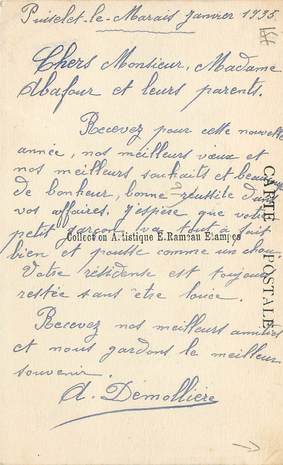 Puiselet-le-Marais Janvier 1935.
Chers Monsieur, Madame
Abafour et leurs parents.
Recevez pour cette nouvelle
année, nos meilleurs vœux et
nos meilleurs souhaits et beaucoup
de bonheur, bonne réussite dans
vos affaires. J'espère que votre
petit garçon va tout à fait
bien et pousse comme un chou.
Votre résidense est toujours
restée sans être louée.
Recevez nos meilleurs amitiés
et nous gardons le meilleur
souvenir.
A. Démollière
CARTE POSTALE
Collection Artistique E.Rameau Etampes